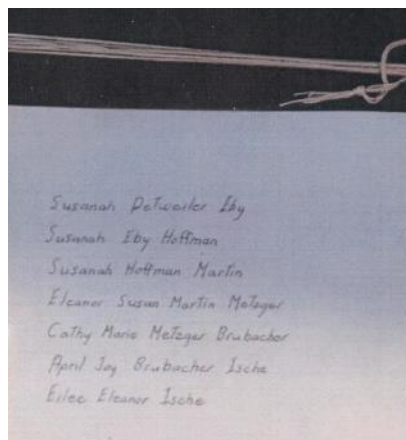 Susanah Detweiler Eby
Susanah Eby Hoffman
Susanah Hoffman Martin
Eleanor Susan Martin Metzger
Cathy Marie Metzger Brubacher
April Joy Brubacher Ische
Eilee Eleanor Ische